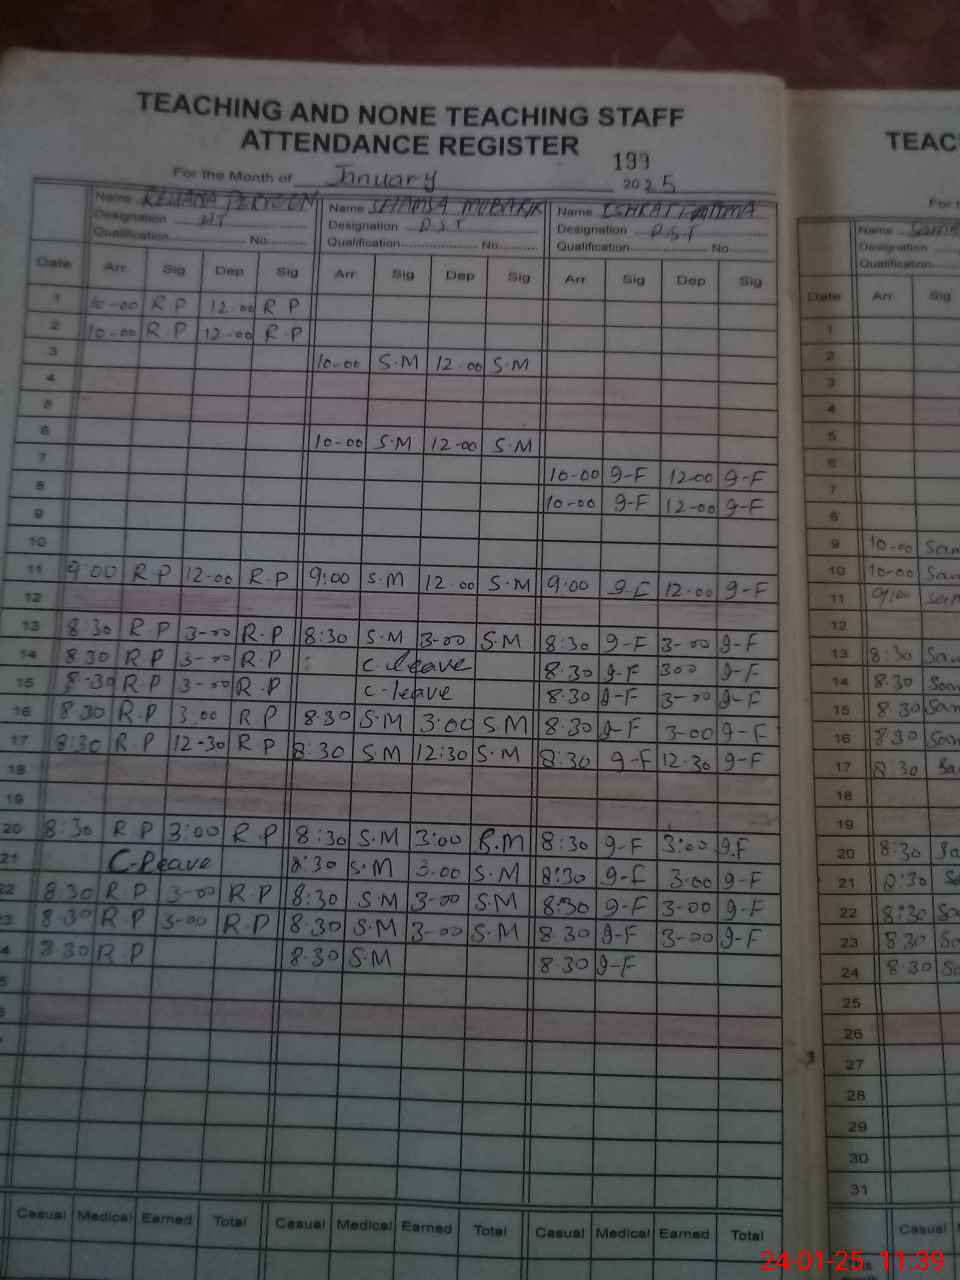 TEACHING AND NONE TEACHING STAFF
ATTENDANCE REGISTER
199
For the Month of January 2025
Name REHANA PERVEEN Name SHAMSA MUBARIK Name ISHRAT FATIMA
Designation HT Designation P.S.T Designation P.S.T
Qualification No Qualification No Qualification No
Date Arr. Sig Dep Sig Arr. Sig Dep Sig Arr. Sig Dep Sig
1 10-00 R P 12.00 R P
2 10-00 R.P 12-00 R.P
3 10-00 S.M 12.00 S.M
4
5
6 10-00 S.M 12-00 S.M
7 10-00 9-F 1200 9-F
8 10-00 9-F 12-00 9-F
9
10
11 9:00 R.P 12-00 R.P 9:00 S.M 12.00 S.M 9:00 9-F 12.00 9-F
12
13 8:30 R P 3-00 R.P 8:30 S.M 3-00 S.M 8:30 9-F 3-00 9-F
14 8.30 R.P 3-00 R.P C-leave 8.30 9-F 300 9-F
15 8-30 R.P 3-00 R.P C-leave 8.30 9-F 3-00 9-F
16 8.30 R.P 3:00 R.P 8.30 S.M 3:00 S.M 8.30 9-F 3-00 9-F
17 8:30 R.P 12-30 R.P 8:30 S.M 12:30 S.M 8.30 9-F 12.30 9-F
18
19
20 8:30 R.P 3:00 R.P 8:30 S.M 3:00 S.M 8:30 9-F 3:00 9.F
21 C-Leave 8:30 S.M 3.00 S.M 8:30 9-F 3.00 9-F
22 8.30 R P 3-00 R P 8:30 S.M 3-00 S.M 8:30 9-F 3-00 9-F
23 8.30 R P 3-00 R.P 8.30 S.M 3-00 S.M 8.30 9-F 3-00 9-F
4 8.30 R.P 8.30 S.M 8.30 9-F
5
Casual Medical Earned Total Casual Medical Earned Total Casual Medical Earned Total
TEAC
For t
Name
Designation
Qualification
Date Arr. Sig
1
2
3
4
5
6
7
8
9 10-00 San
10 10-00 San
11 9:00 San
12
13 8:30 San
14 8.30 San
15 8.30 San
16 8:30 San
17 8:30
18
19
20 8:30 Sa
21 8:30 Sa
22 8:30 Sa
23 8.30 Sa
24 8.30 Sa
25
26
27
28
29
30
31
Casual
24-01-25 11:39